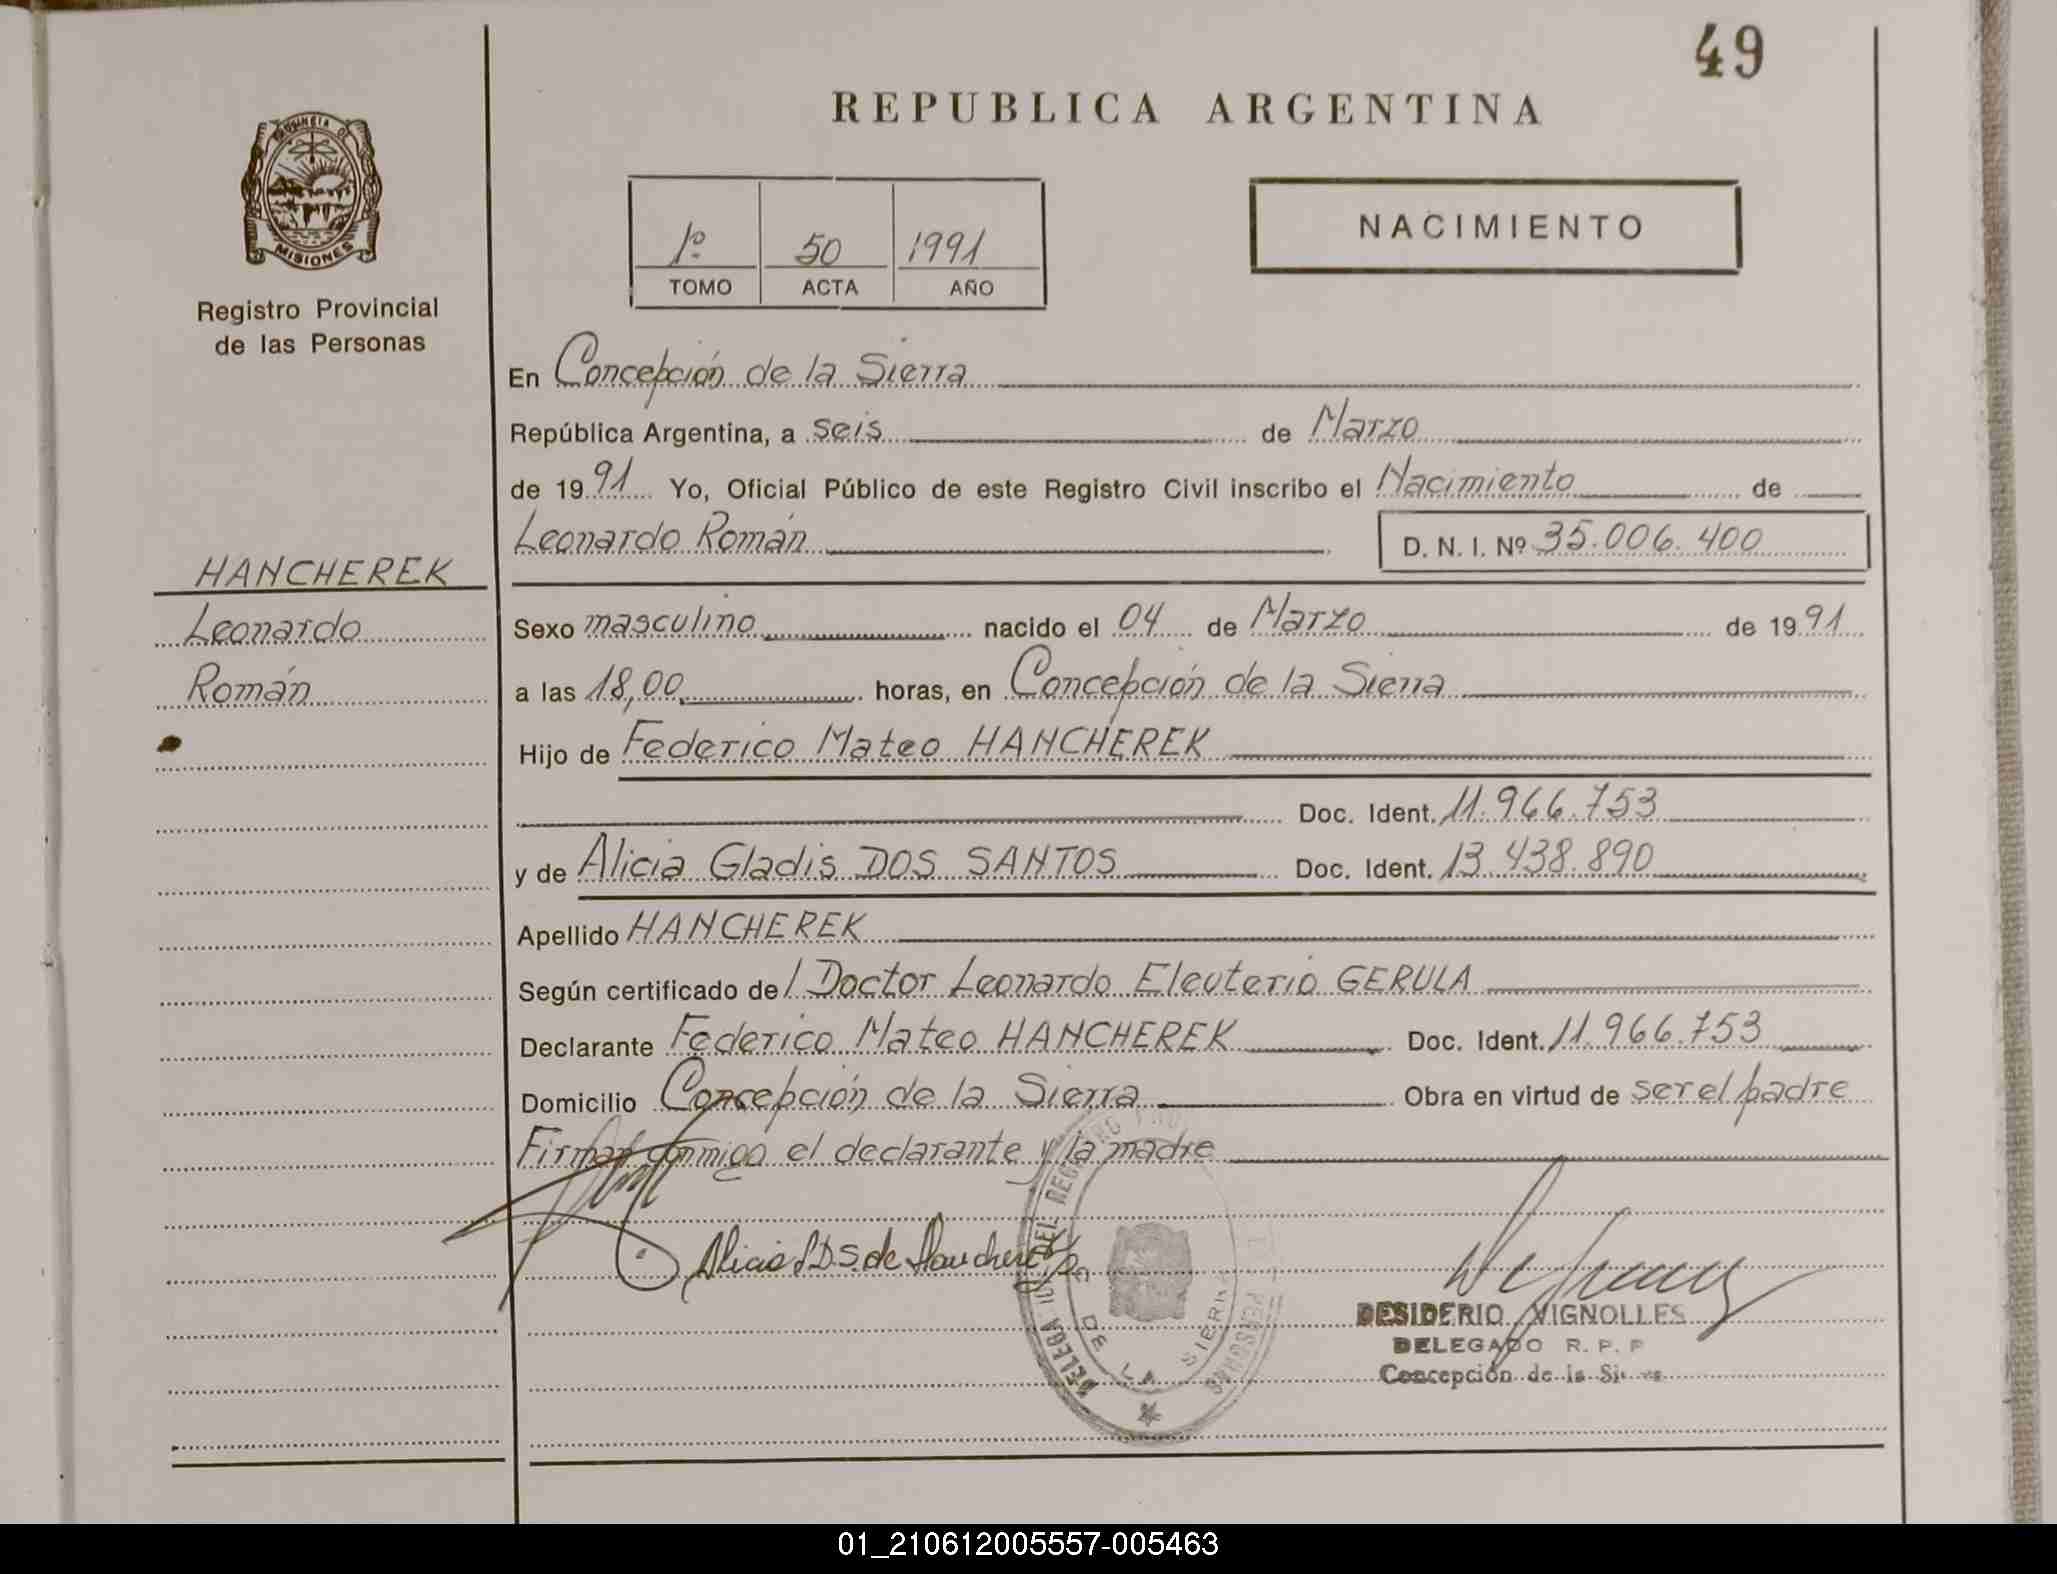 49
REPUBLICA ARGENTINA
PROVINCIA DE
MISIONES
Registro Provincial
de las Personas
1º 50 1991
TOMO ACTA AÑO
NACIMIENTO
En Concepción de la Sierra
República Argentina, a seis de Marzo
de 1991 Yo, Oficial Público de este Registro Civil inscribo el Nacimiento de
Leonardo Román D. N. I. Nº 35.006.400
HANCHEREK
Leonardo
Román
Sexo masculino nacido el 04 de Marzo de 1991
a las 18,00 horas, en Concepción de la Sierra
Hijo de Federico Mateo HANCHEREK
Doc. Ident. 11.966.753
y de Alicia Gladis DOS SANTOS Doc. Ident. 13.438.890
Apellido HANCHEREK
Según certificado del Doctor Leonardo Eleuterio GERULA
Declarante Federico Mateo HANCHEREK Doc. Ident. 11.966.753
Domicilio Concepción de la Sierra Obra en virtud de ser el padre
Firman conmigo el declarante y la madre
Alicia D.S. de Hancherek
DE LA SIERRA
DESIDERIO VIGNOLLES
DELEGADO R. P. P
Concepción de la Sierra
01_210612005557-005463